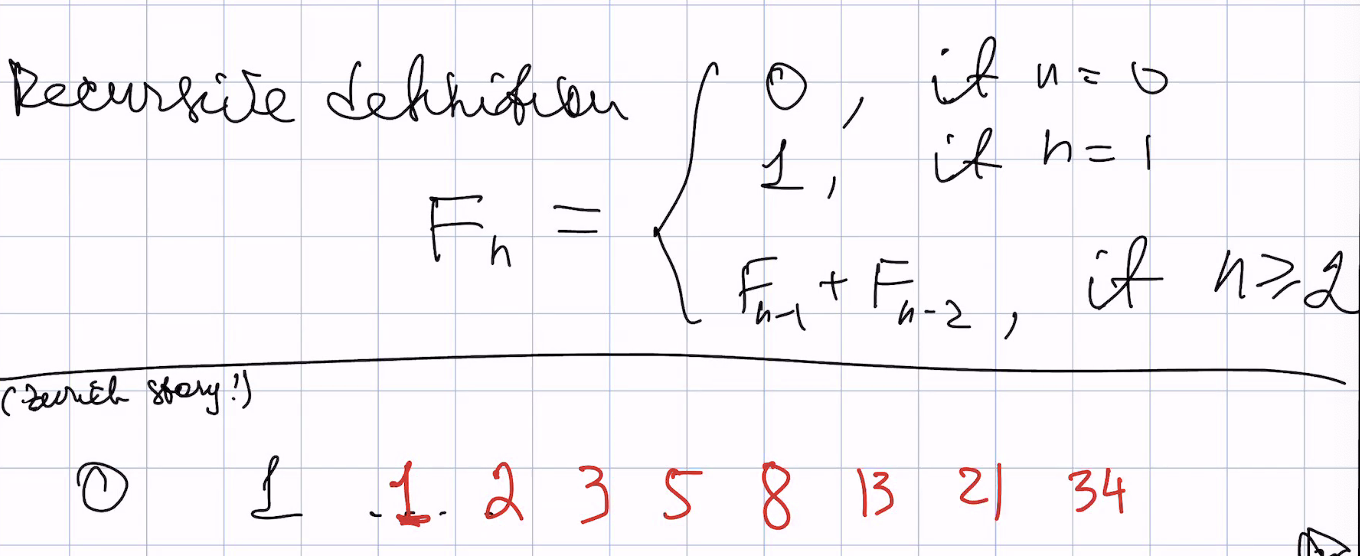 Recursive definition
F_n = { 0, if n = 0
1, if n = 1
F_{n-1} + F_{n-2}, if n ≥ 2
(Zurich story!)
0 1 1 2 3 5 8 13 21 34